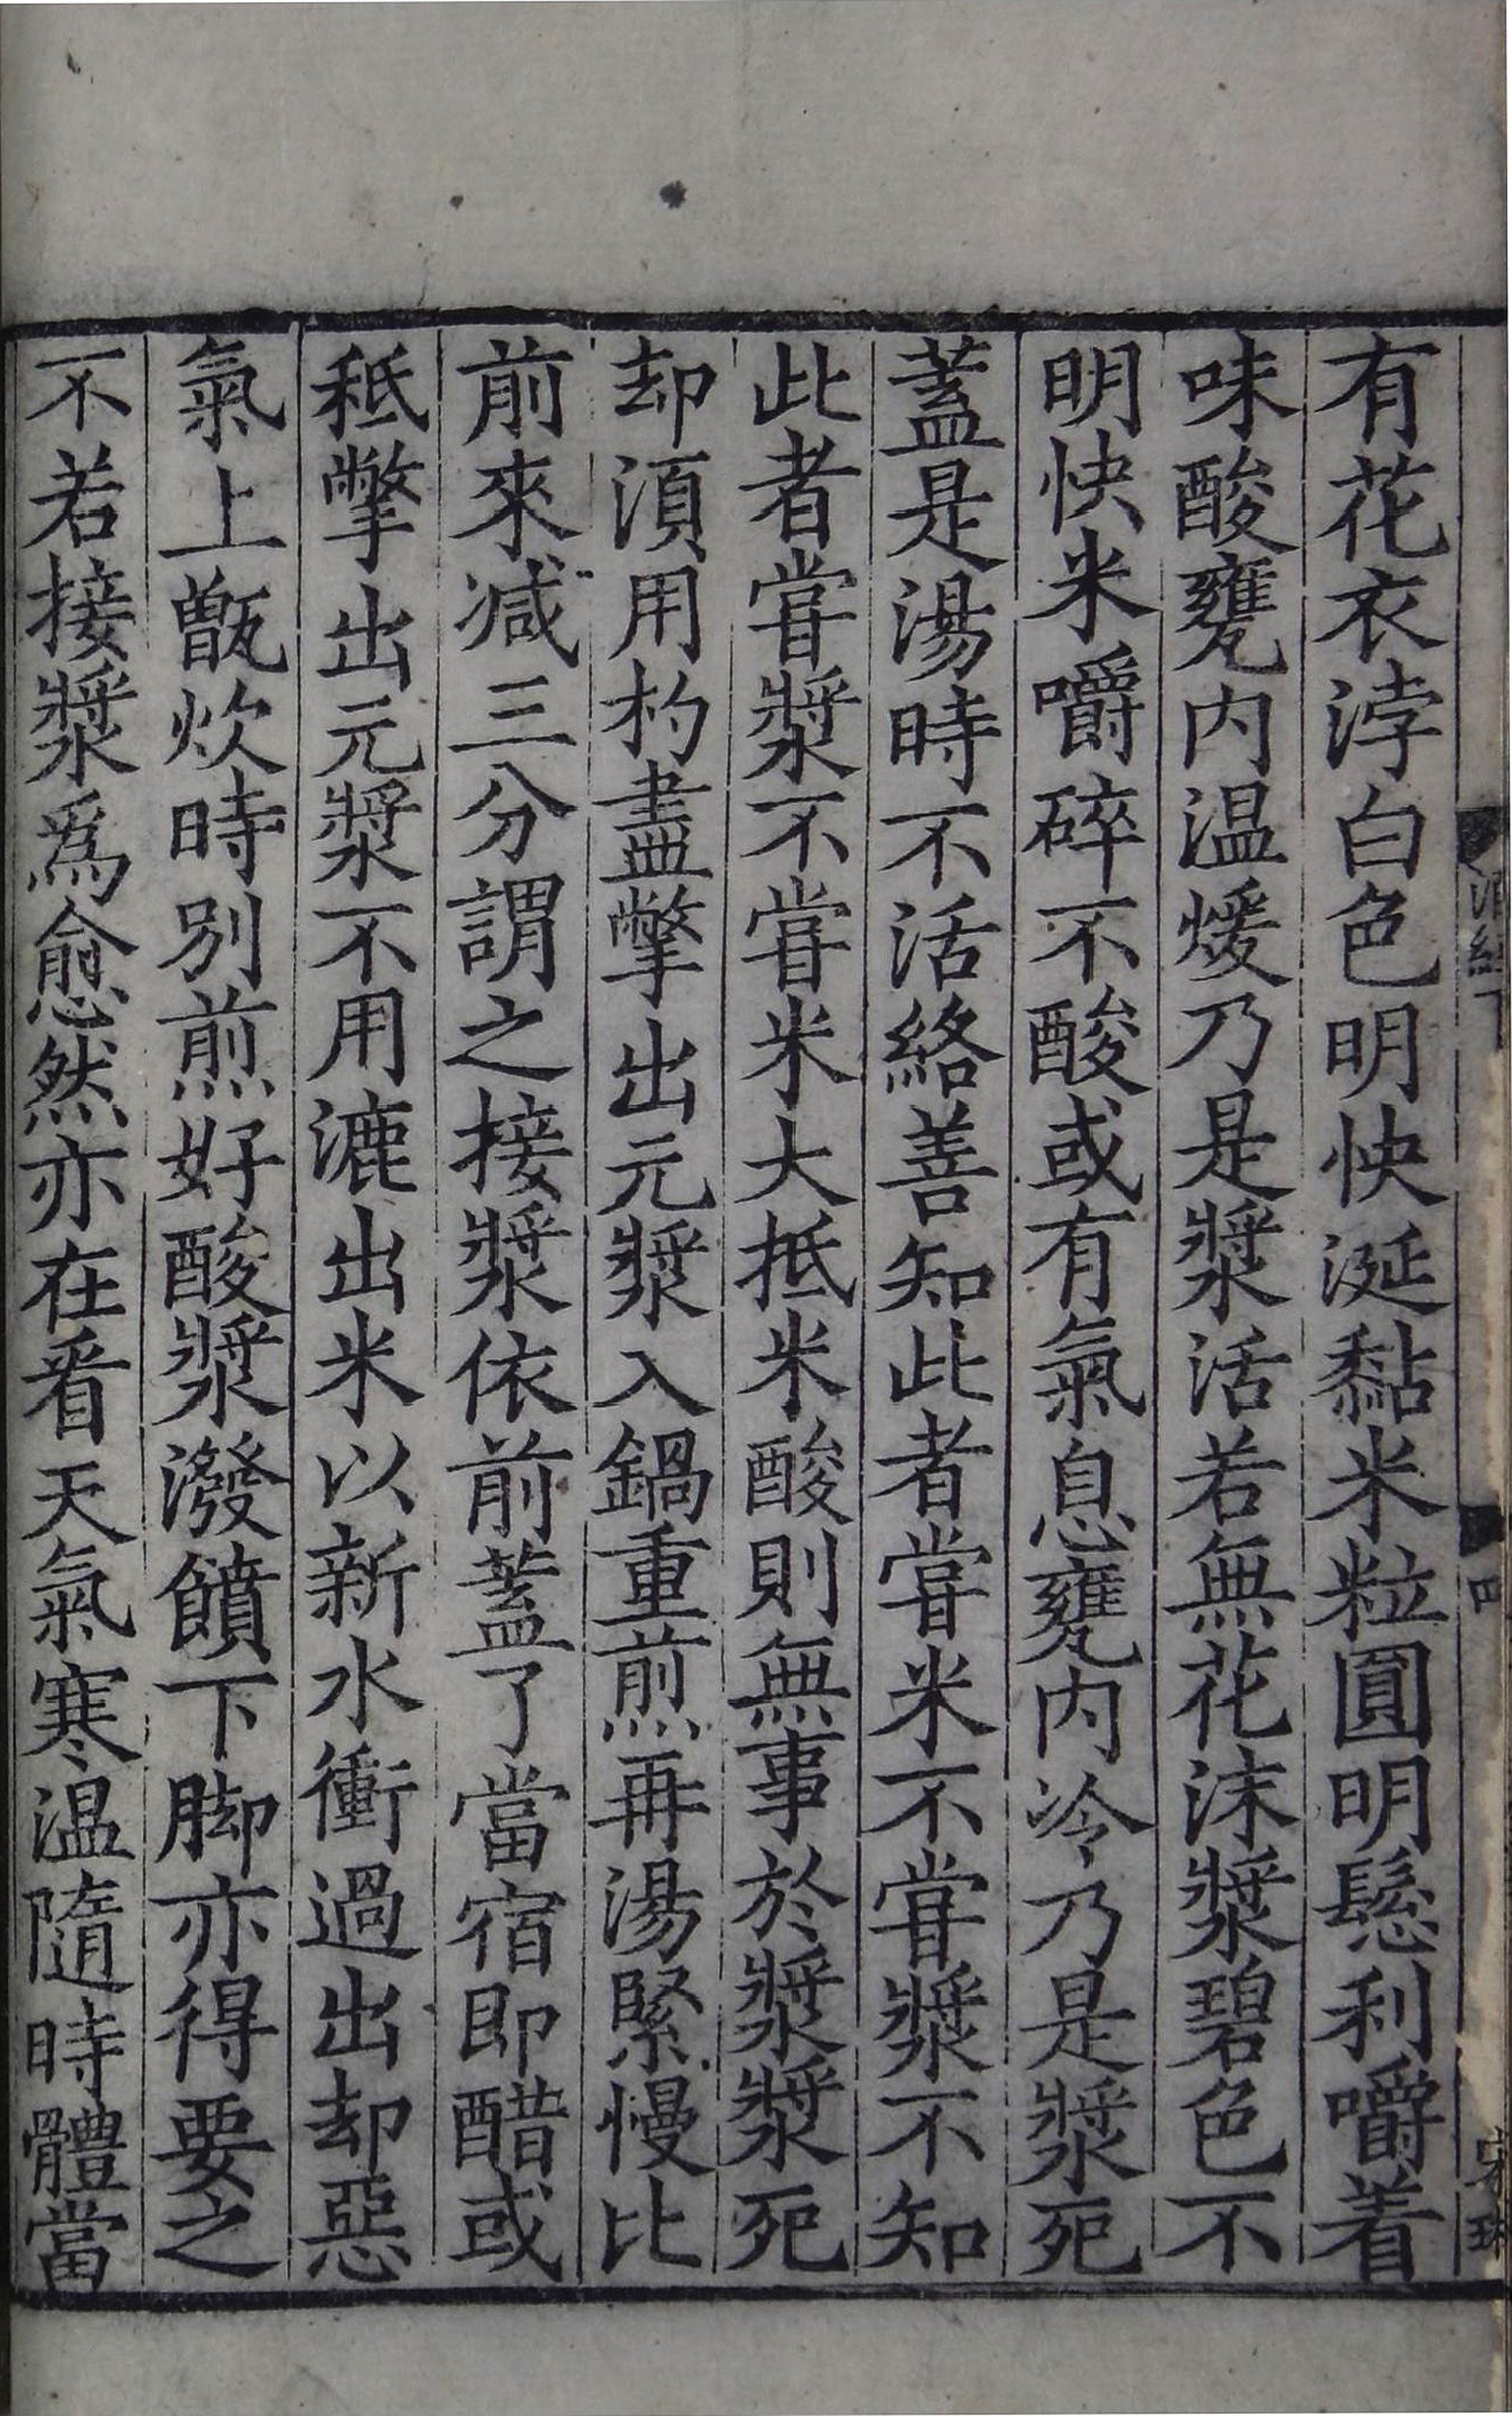 有花衣浡白色明快涎黏米粒圓明鬆利嚼着
味酸甕内温煖乃是漿活若無花沫漿碧色不
明快米嚼碎不酸或有氣息甕内冷乃是漿死
蓋是湯時不活絡善知此者甞米不甞漿不知
此者甞漿不甞米大抵米酸則無事於漿漿死
却湏用杓盡撆出元漿入鍋重煎再湯緊慢比
前來减三分謂之接漿依前蓋了當宿即醋或
秪撆出元漿不用漉出米以新水衝過出却惡
氣上甑炊時别煎好酸漿潑饙下脚亦得要之
不若接漿爲愈然亦在看天氣寒温隨時體當